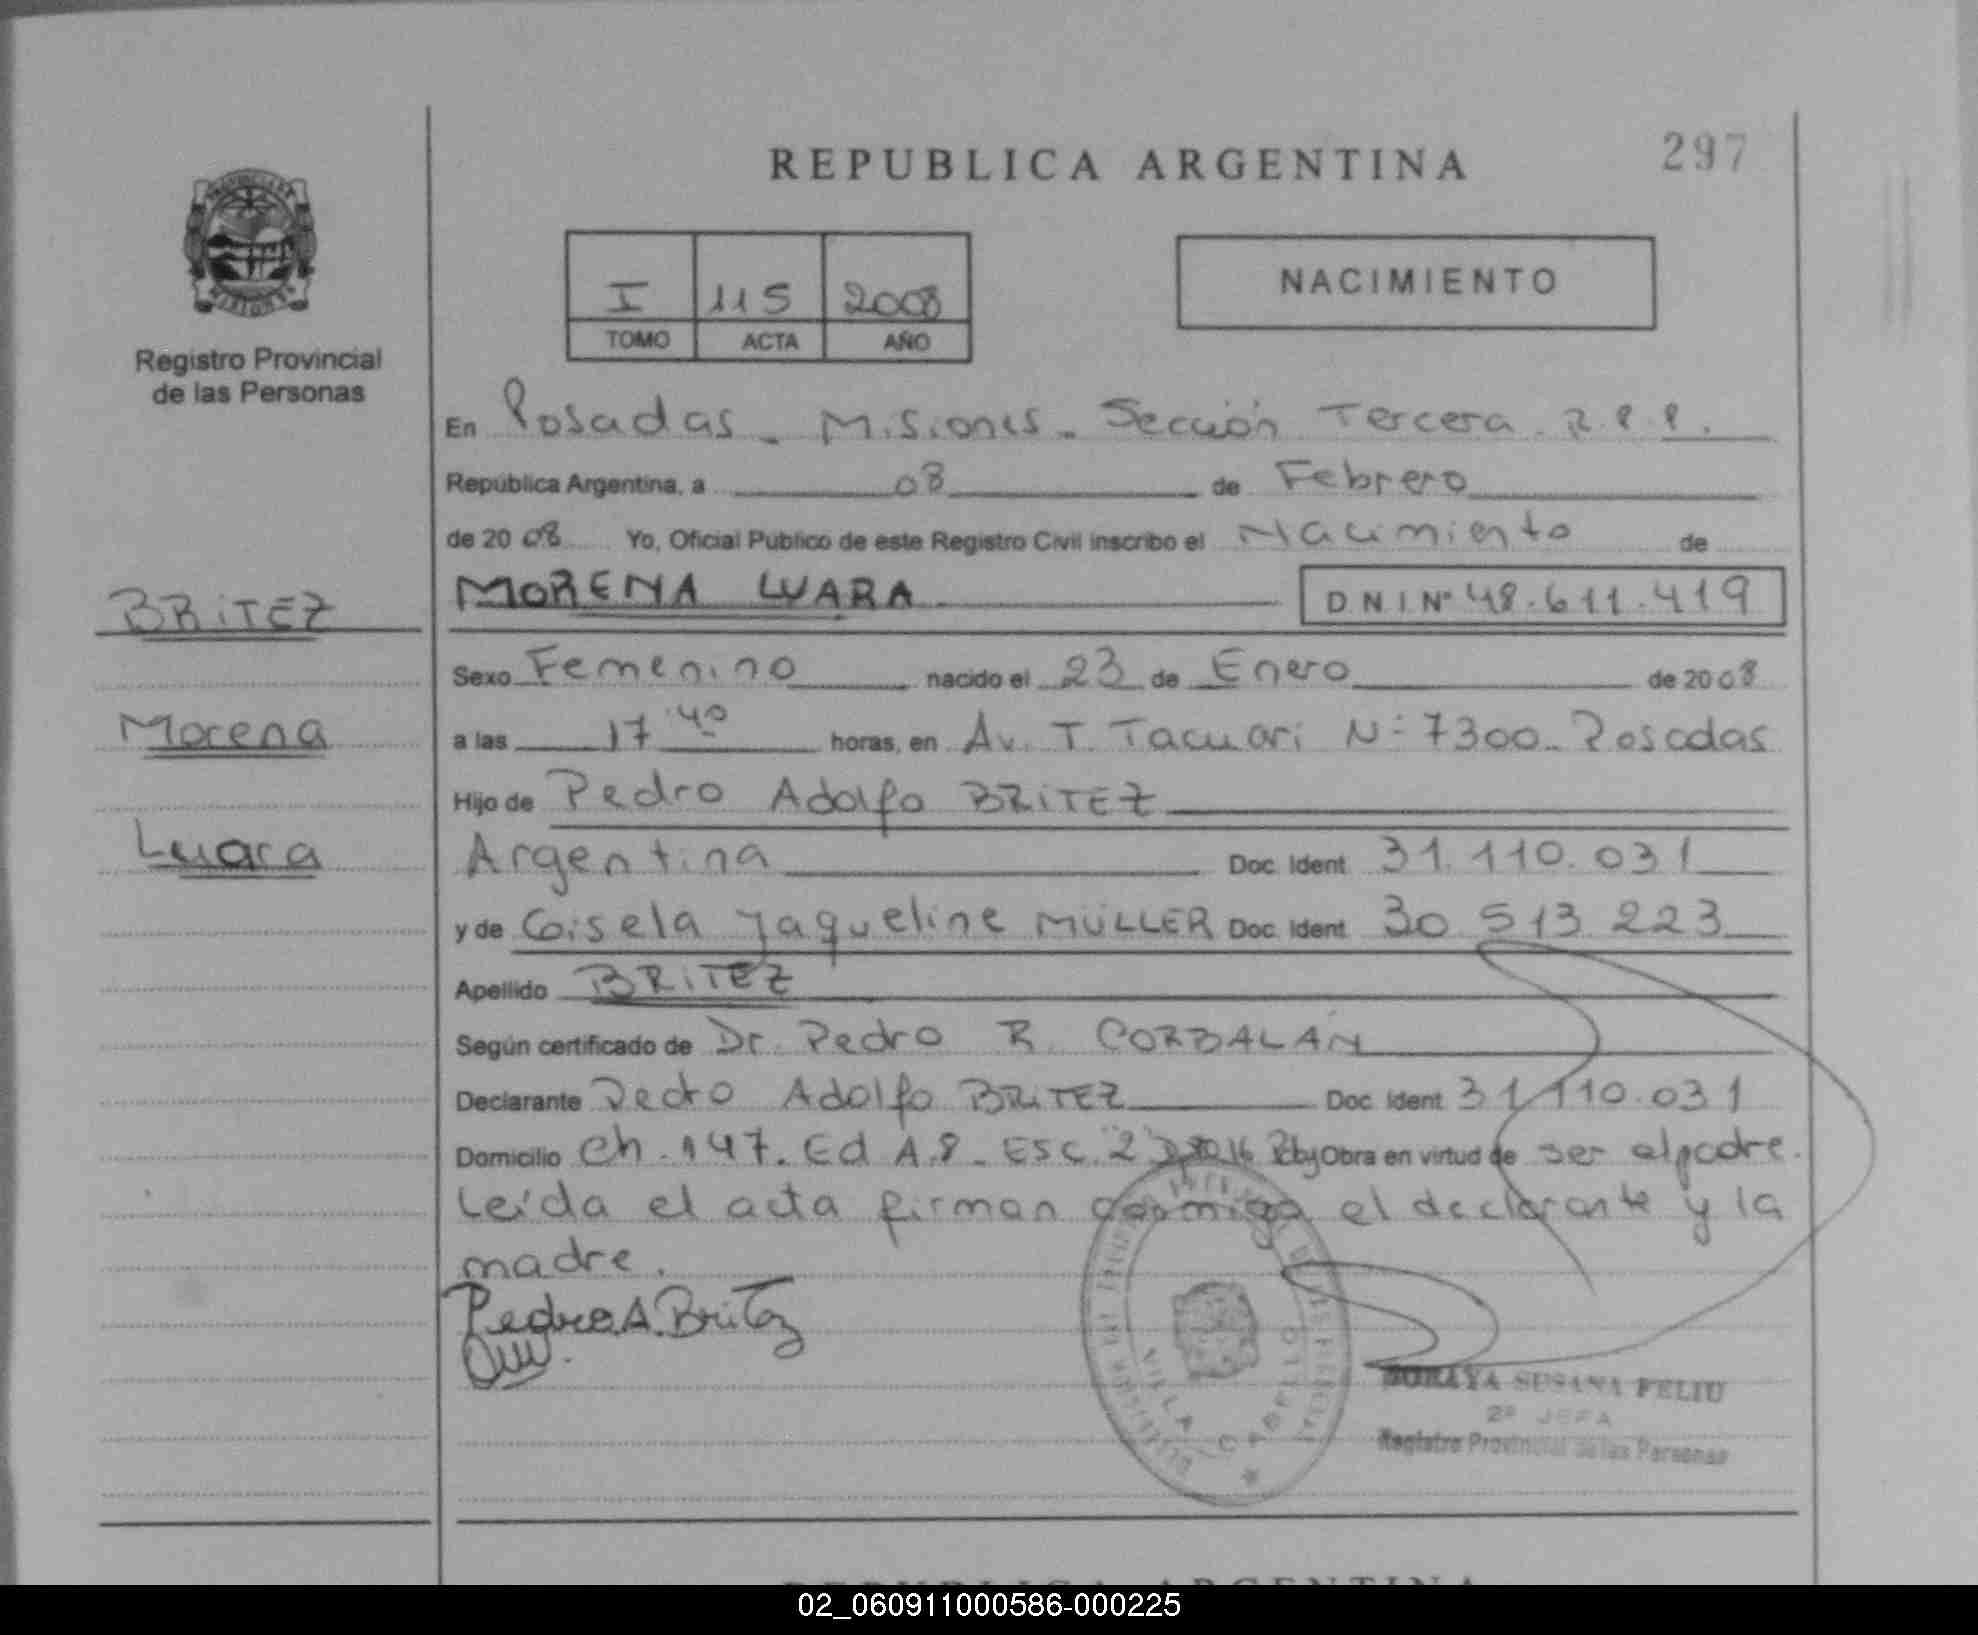 REPUBLICA ARGENTINA
297
Registro Provincial
de las Personas
I 115 2008
TOMO ACTA AÑO
NACIMIENTO
En Posadas - Misiones - Sección Tercera. R.P.P.
República Argentina, a 08 de Febrero
de 20 08 Yo, Oficial Público de este Registro Civil inscribo el Nacimiento de
BRITEZ
Morena
Luara
MORENA LUARA DNI Nº 48.611.419
Sexo Femenino nacido el 23 de Enero de 2008
a las 17 40 horas, en Av. T. Tacuari Nº 7300. Posadas
Hijo de Pedro Adolfo BRITEZ
Argentina Doc. Ident 31.110.031
y de Gisela Jaqueline MÜLLER Doc. Ident 30 513 223
Apellido BRITEZ
Según certificado de Dr. Pedro R. CORBALÁN
Declarante Pedro Adolfo BRITEZ Doc. Ident 31.110.031
Domicilio Ch. 147. Ed A.8 - Esc. "2" Obra en virtud de ser el padre.
Leída el acta firman conmigo el declarante y la
madre.
Pedro A. Britez
VILLA CABELLO
SORAYA SUSANA FELIU
2ª JEFA
Registro Provincial de las Personas
REPUBLICA ARGENTINA
02_060911000586-000225